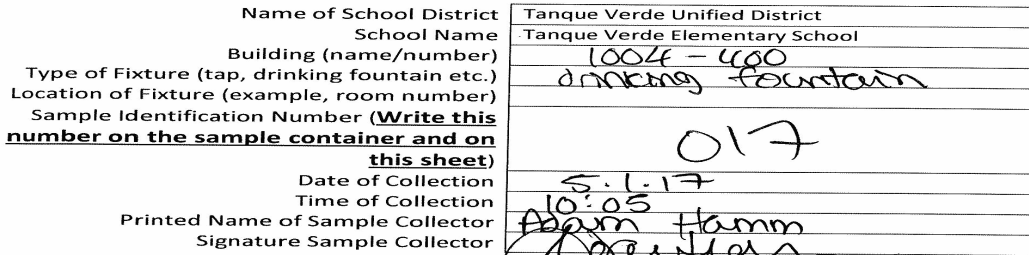 Name of School District Tanque Verde Unified District
School Name Tanque Verde Elementary School
Building (name/number) 1004 - 400
Type of Fixture (tap, drinking fountain etc.) drinking fountain
Location of Fixture (example, room number)
Sample Identification Number (Write this
number on the sample container and on
this sheet) 017
Date of Collection 5.1.17
Time of Collection 10:05
Printed Name of Sample Collector Adam Hamm
Signature Sample Collector